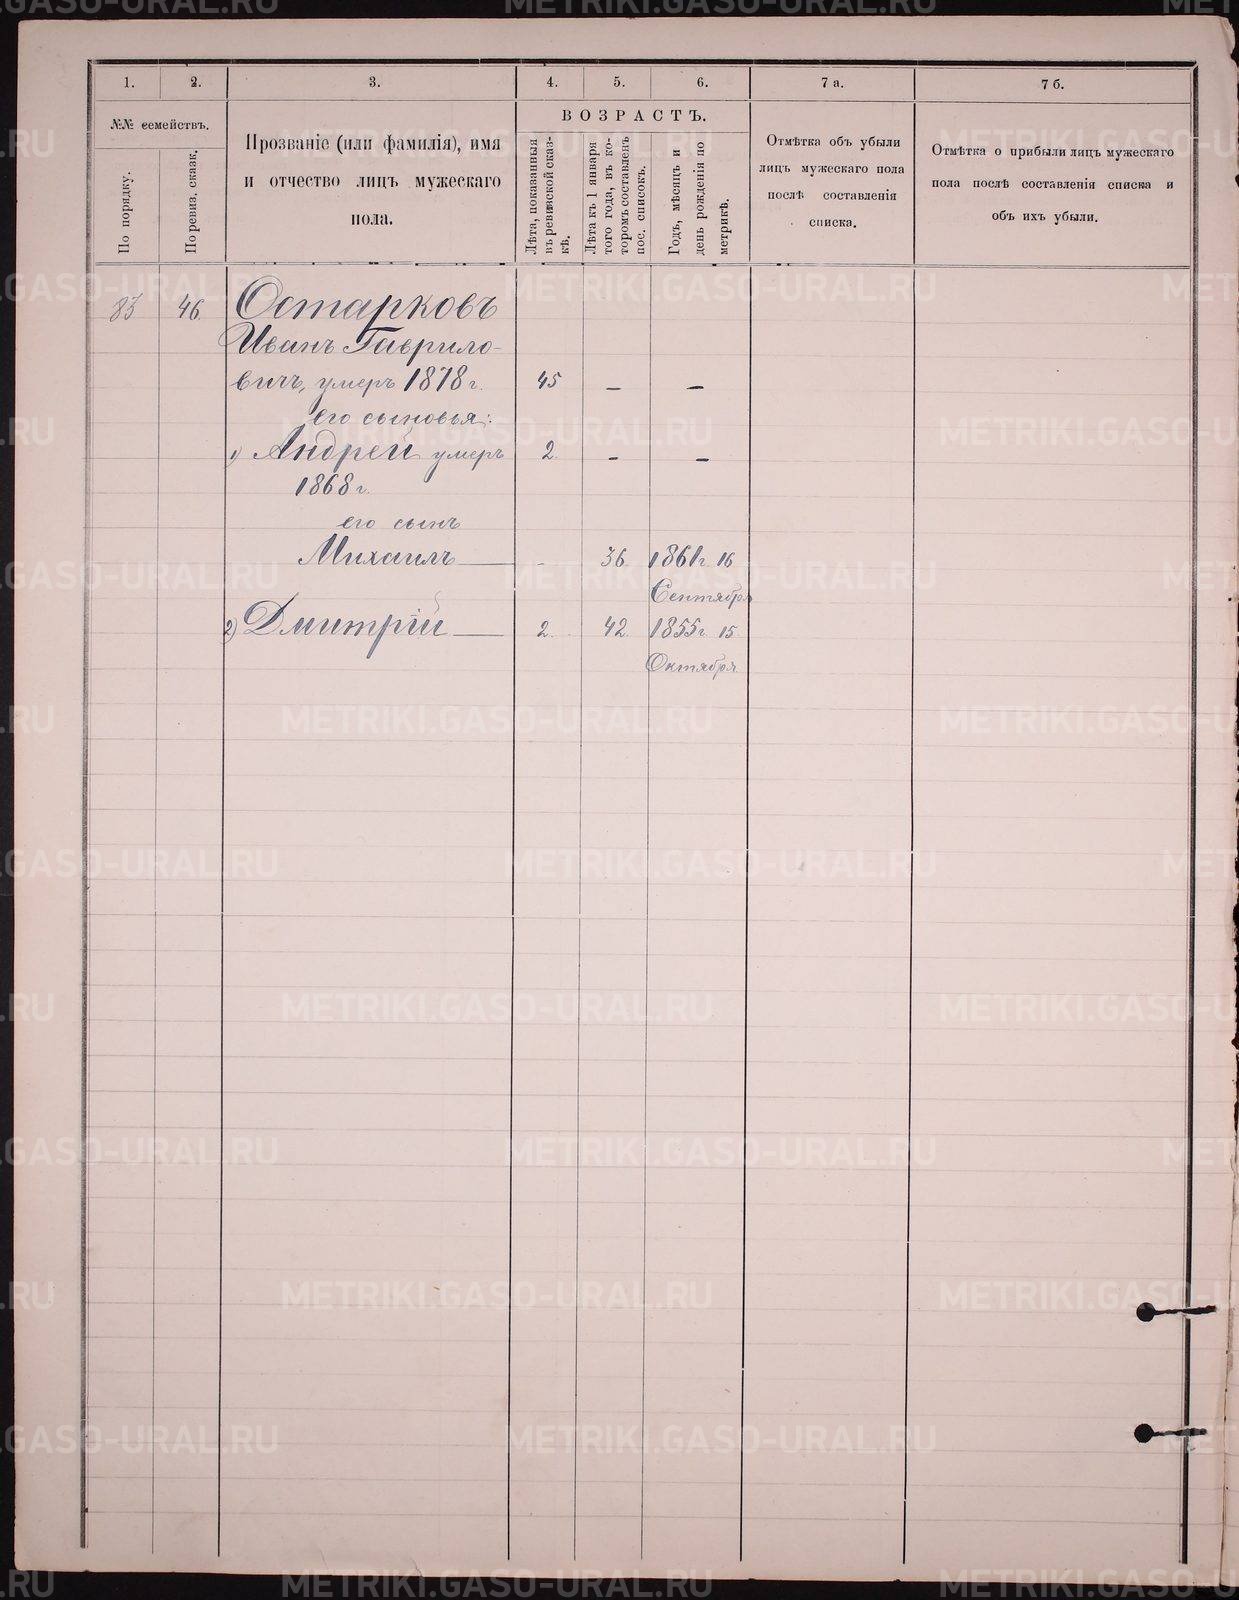 1. 2. 3. 4. 5. 6. 7 а. 7 б.
№№ семействъ.
По порядку.
По ревиз. сказк.
Прозваніе (или фамилія), имя
и отчество лицъ мужескаго
пола.
ВОЗРАСТЪ.
Лѣта, показанныя
въ ревизской сказ-
кѣ.
Лѣта къ 1 января
того года, въ ко-
торомъ составленъ
пос. списокъ.
Годъ, мѣсяцъ и
день рожденія по
метрикѣ.
Отмѣтка объ убыли
лицъ мужескаго пола
послѣ составленія
списка.
Отмѣтка о прибыли лицъ мужескаго
пола послѣ составленія списка и
объ ихъ убыли.
83 46 Остарковъ
Иванъ Гаврило-
вичъ, умеръ 1878 г. 45 — —
его сыновья:
1) Андрей умеръ 2. — —
1868 г.
его сынъ
Михаилъ — - 36. 1861 г. 16
Сентября
2) Дмитрій — 2. 42. 1855 г. 15
Октября
METRIKI.GASO-URAL.RU